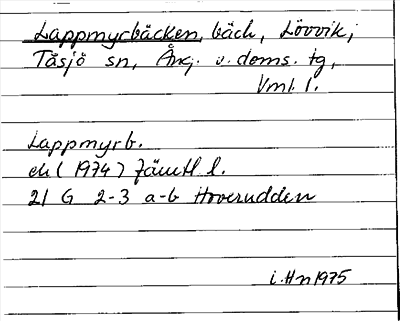 Lappmyrbäcken, bäck, Lövvik,
Tåsjö sn, Ång. v. doms. tg,
Vml. l.
Lappmyrb.
ek (1974) Jämtl l.
21 G 2-3 a-b Hoverudden
i.Hn 1975